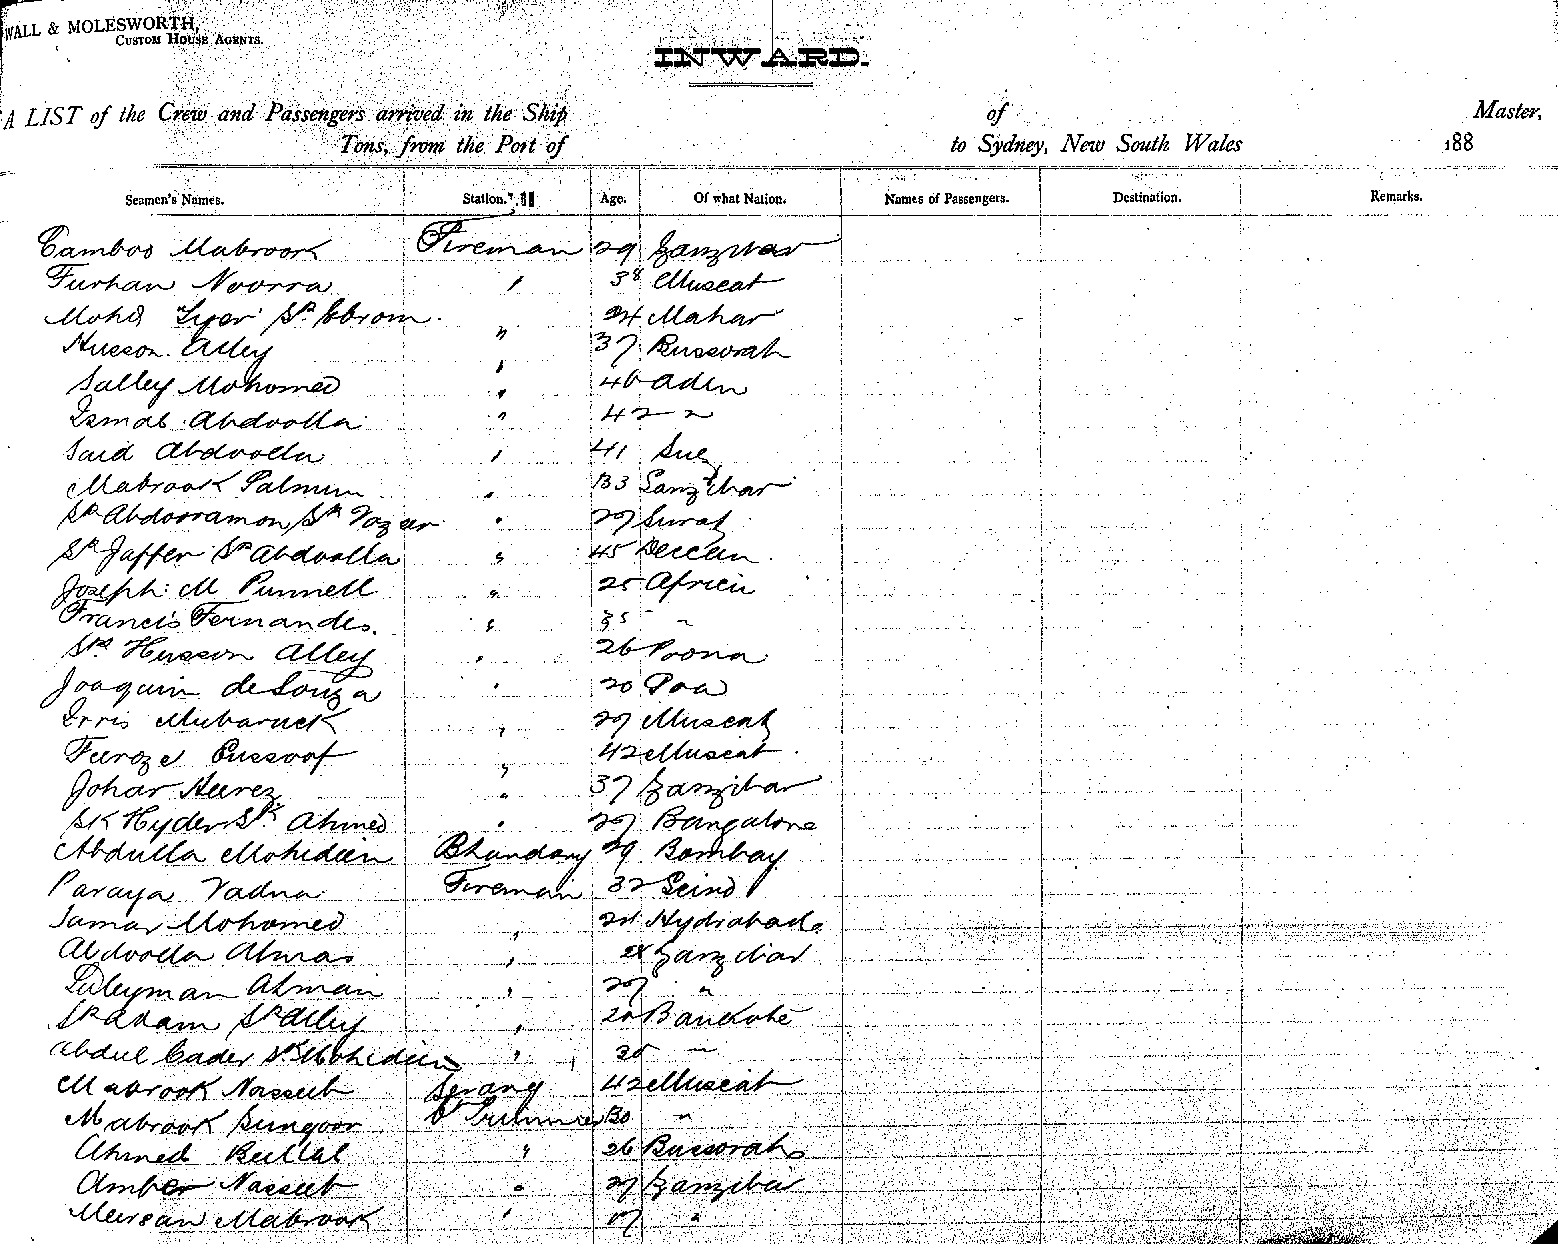 WALL & MOLESWORTH,
CUSTOM HOUSE AGENTS.
INWARD.
A LIST of the Crew and Passengers arrived in the Ship of Master,
Tons, from the Port of to Sydney, New South Wales 188
Seamen's Names. Station. Age. Of what Nation. Names of Passengers. Destination. Remarks.
Camboo Mabrook Fireman 29 Zanzibar
Furhan Noorra " 38 Muscat
Mohd Syer Sk Ebrom " 24 Mahar
Husson Alley " 37 Bussorah
Salley Mohomed " 46 Aden
Ismal Abdoolla " 42 "
Said Abdoolla " 41 Suez
Mabrook Salmin " 33 Zanzibar
Sk Abdorramon Sk Vazeer " 27 Surat
Sk Jaffer Sk Abdoolla " 45 Deccan
Joseph M Punnell " 25 Africa
Francis Fernandes. " 35 "
Sk Husson Alley " 26 Poona
Joaquim de Souza " 20 Goa
Irris Mubaruck " 27 Muscat
Feroze Eussoof " 42 Muscat
Johar Heerez " 37 Zanzibar
Sk Hyder Sk Ahmed " 27 Bangalore
Abdulla Mohideen Bhandary 29 Bombay
Paraya Vadna Fireman 32 Scind
Jumar Mohomed " 24 Hydrabad
Abdoolla Almas " Zanzibar
Suleyman Alman " 27 "
Sk Adam Sk Alley " 20 Bankote
Abdul Cader Sk Mohideen " 20 "
Mabrook Nasseeb Serang 42 Muscat
Mabrook Sungoor Cl Trimmer 30 "
Ahmed Bellal " 26 Bussorah
Amber Nasseeb " 27 Zanzibar
Meersan Mabrook " 17 "